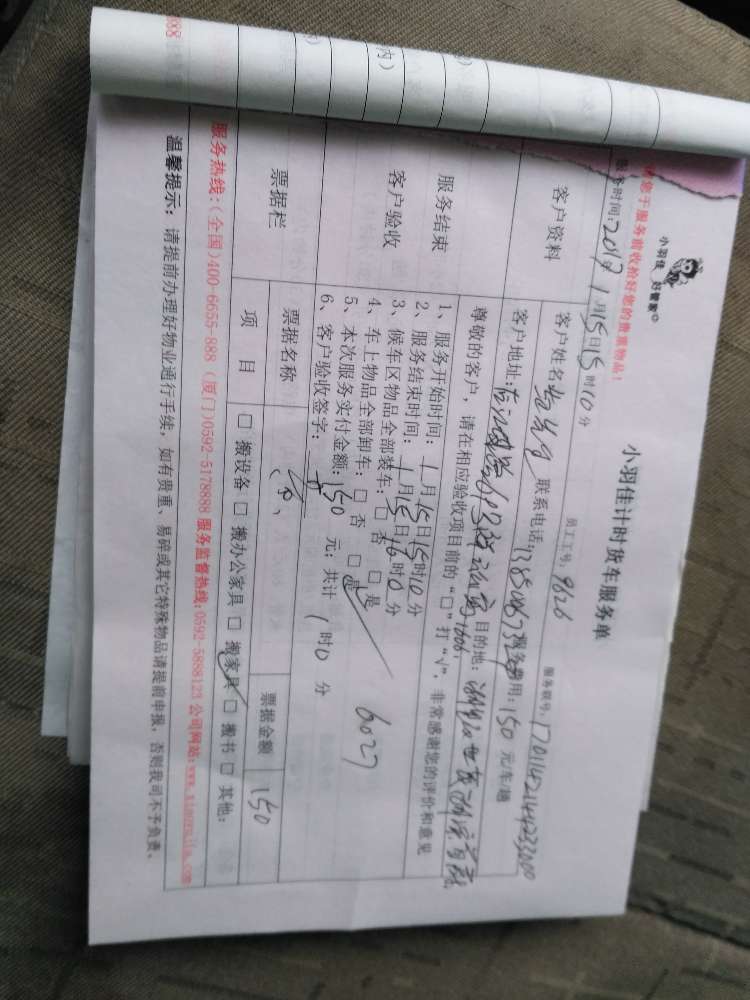 小羽佳 好管家
小羽佳计时货车服务单
您于服务前收拾好您的贵重物品!
务时间:2017年1月15日15时10分
员工工号:9626
服务联号:
客户资料
客户姓名
联系电话:
服务费用:150元/车/趟
客户地址:
目的地:
服务结束
客户验收
尊敬的客户,请在相应验收项目前的“□”打“√”,非常感谢您的评价和意见
1、服务开始时间:1月15日15时10分
2、服务结束时间:1月15日16时10分
3、候车区物品全部装车:□否 □是
4、车上物品全部卸车:□否 □是
5、本次服务实付金额:150元;共计1时0分
6、客户验收签字:
6027
票据栏
票据名称
票据金额 150
项 目 □搬设备 □搬办公家具 □搬家具 □搬书 □其他:
服务热线:(全国)400-6655-888 (厦门)0592-5178888 服务监督热线:0592-5888123 公司网站:www.xiaoyujia.com
温馨提示:请提前办理好物业通行手续,如有贵重、易碎或其它特殊物品请提前申报,否则我司不予负责。
888
内)